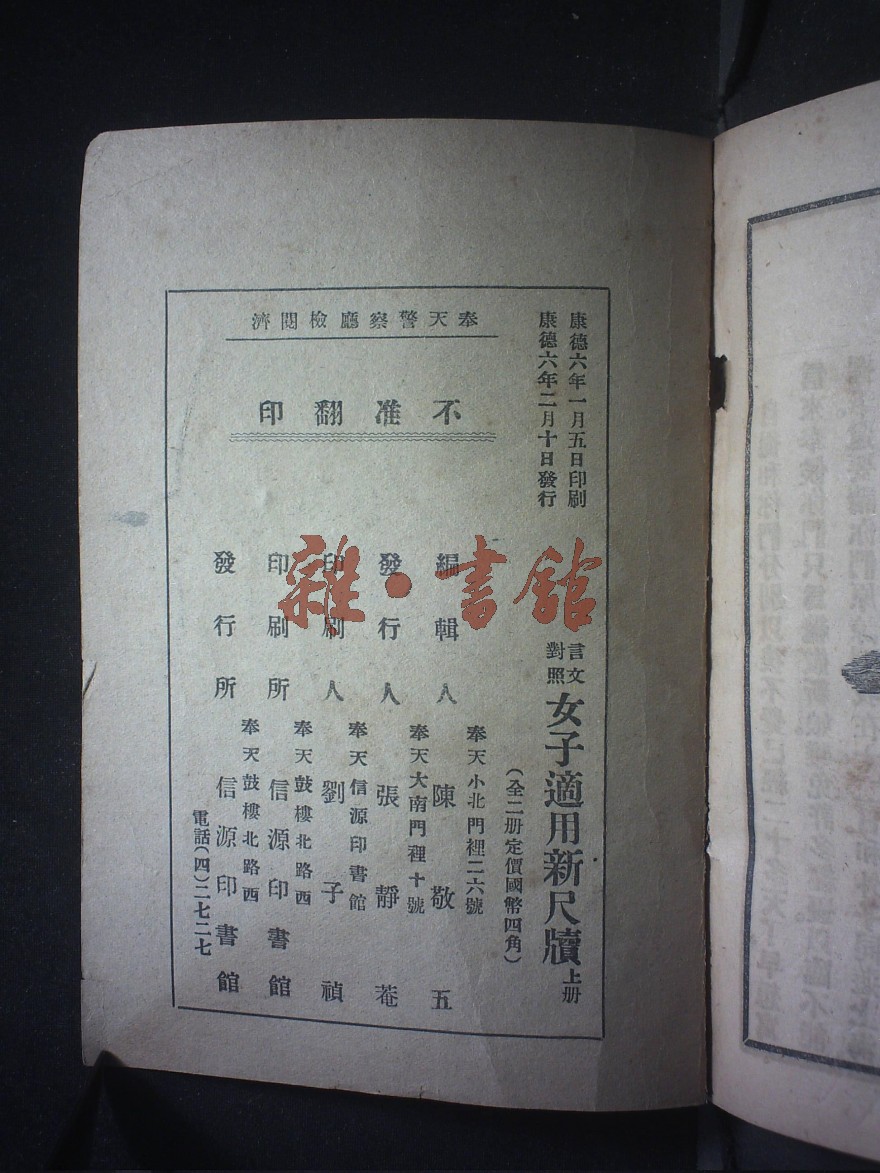 康德六年一月五日印刷
康德六年二月十日發行
言文
對照
女子適用新尺牘 上册
(全二册定價國幣四角)
奉天警察廳檢閱濟
不准翻印
奉天小北門裡二六號
編輯人 陳敬五
奉天大南門裡十號
發行人 張靜菴
奉天信源印書館
印刷人 劉子禎
奉天鼓樓北路西
印刷所 信源印書館
奉天鼓樓北路西
發行所 信源印書館
電話(四)二七二七
雜·書館